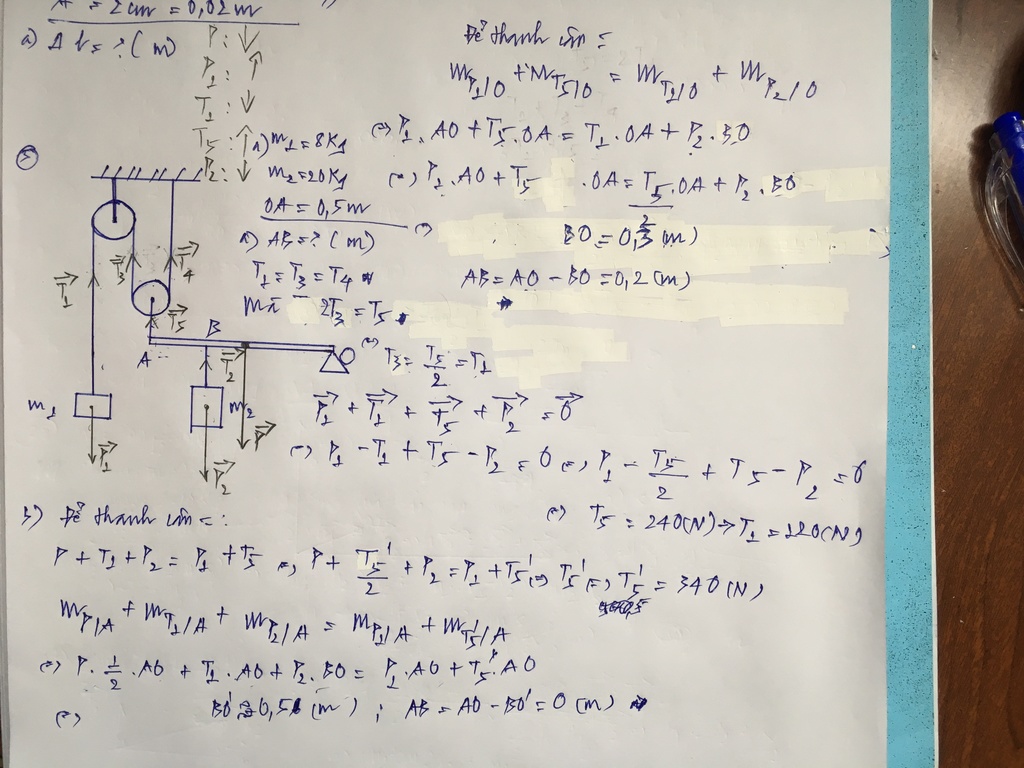 A = 2cm = 0,02m
a) Δl = ? (m)
P: ↓
P₁: ↑
T₁: ↓
T₅: ↑
P₂: ↓
a) m₁ = 8Kg
m₂ = 20Kg
OA = 0,5m
a) AB = ? (m)
T₁ = T₃ = T₄
Mà 2T₃ = T₅
(=) T₃ = T₅/2 = T₁
Để thanh cân =
M_P₁/O + M_T₅/O = M_T₁/O + M_P₂/O
(=) P₁.AO + T₅.OA = T₁.OA + P₂.BO
(=) P₁.AO + T₅ .OA = T₅/2 .OA + P₂.BO
(=) BO = 0,3 (m)
AB = AO - BO = 0,2 (m)
T₁ T₃ T₄
T₅
A B T₂
m₁ m₂
P₁ P₂ P
P₁ + T₁ + T₅ + P₂ = 0
(=) P₁ - T₁ + T₅ - P₂ = 0 (=) P₁ - T₅/2 + T₅ - P₂ = 0
(=) T₅ = 240(N) → T₁ = 120(N)
b) Để thanh cân =:
P + T₁ + P₂ = P₁ + T₅ (=) P + T₅'/2 + P₂ = P₁ + T₅' (=) T₅' (=) T₅' = 340(N)
M_P/A + M_T₁/A + M_P₂/A = M_P₁/A + M_T₅'/A
(=) P.1/2.AO + T₁.AO + P₂.BO = P₁.AO + T₅'.AO
(=) BO' = 0,5 (m) ; AB = AO - BO' = 0 (m)